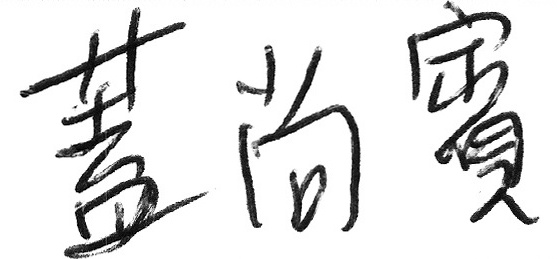 蓋尚賓